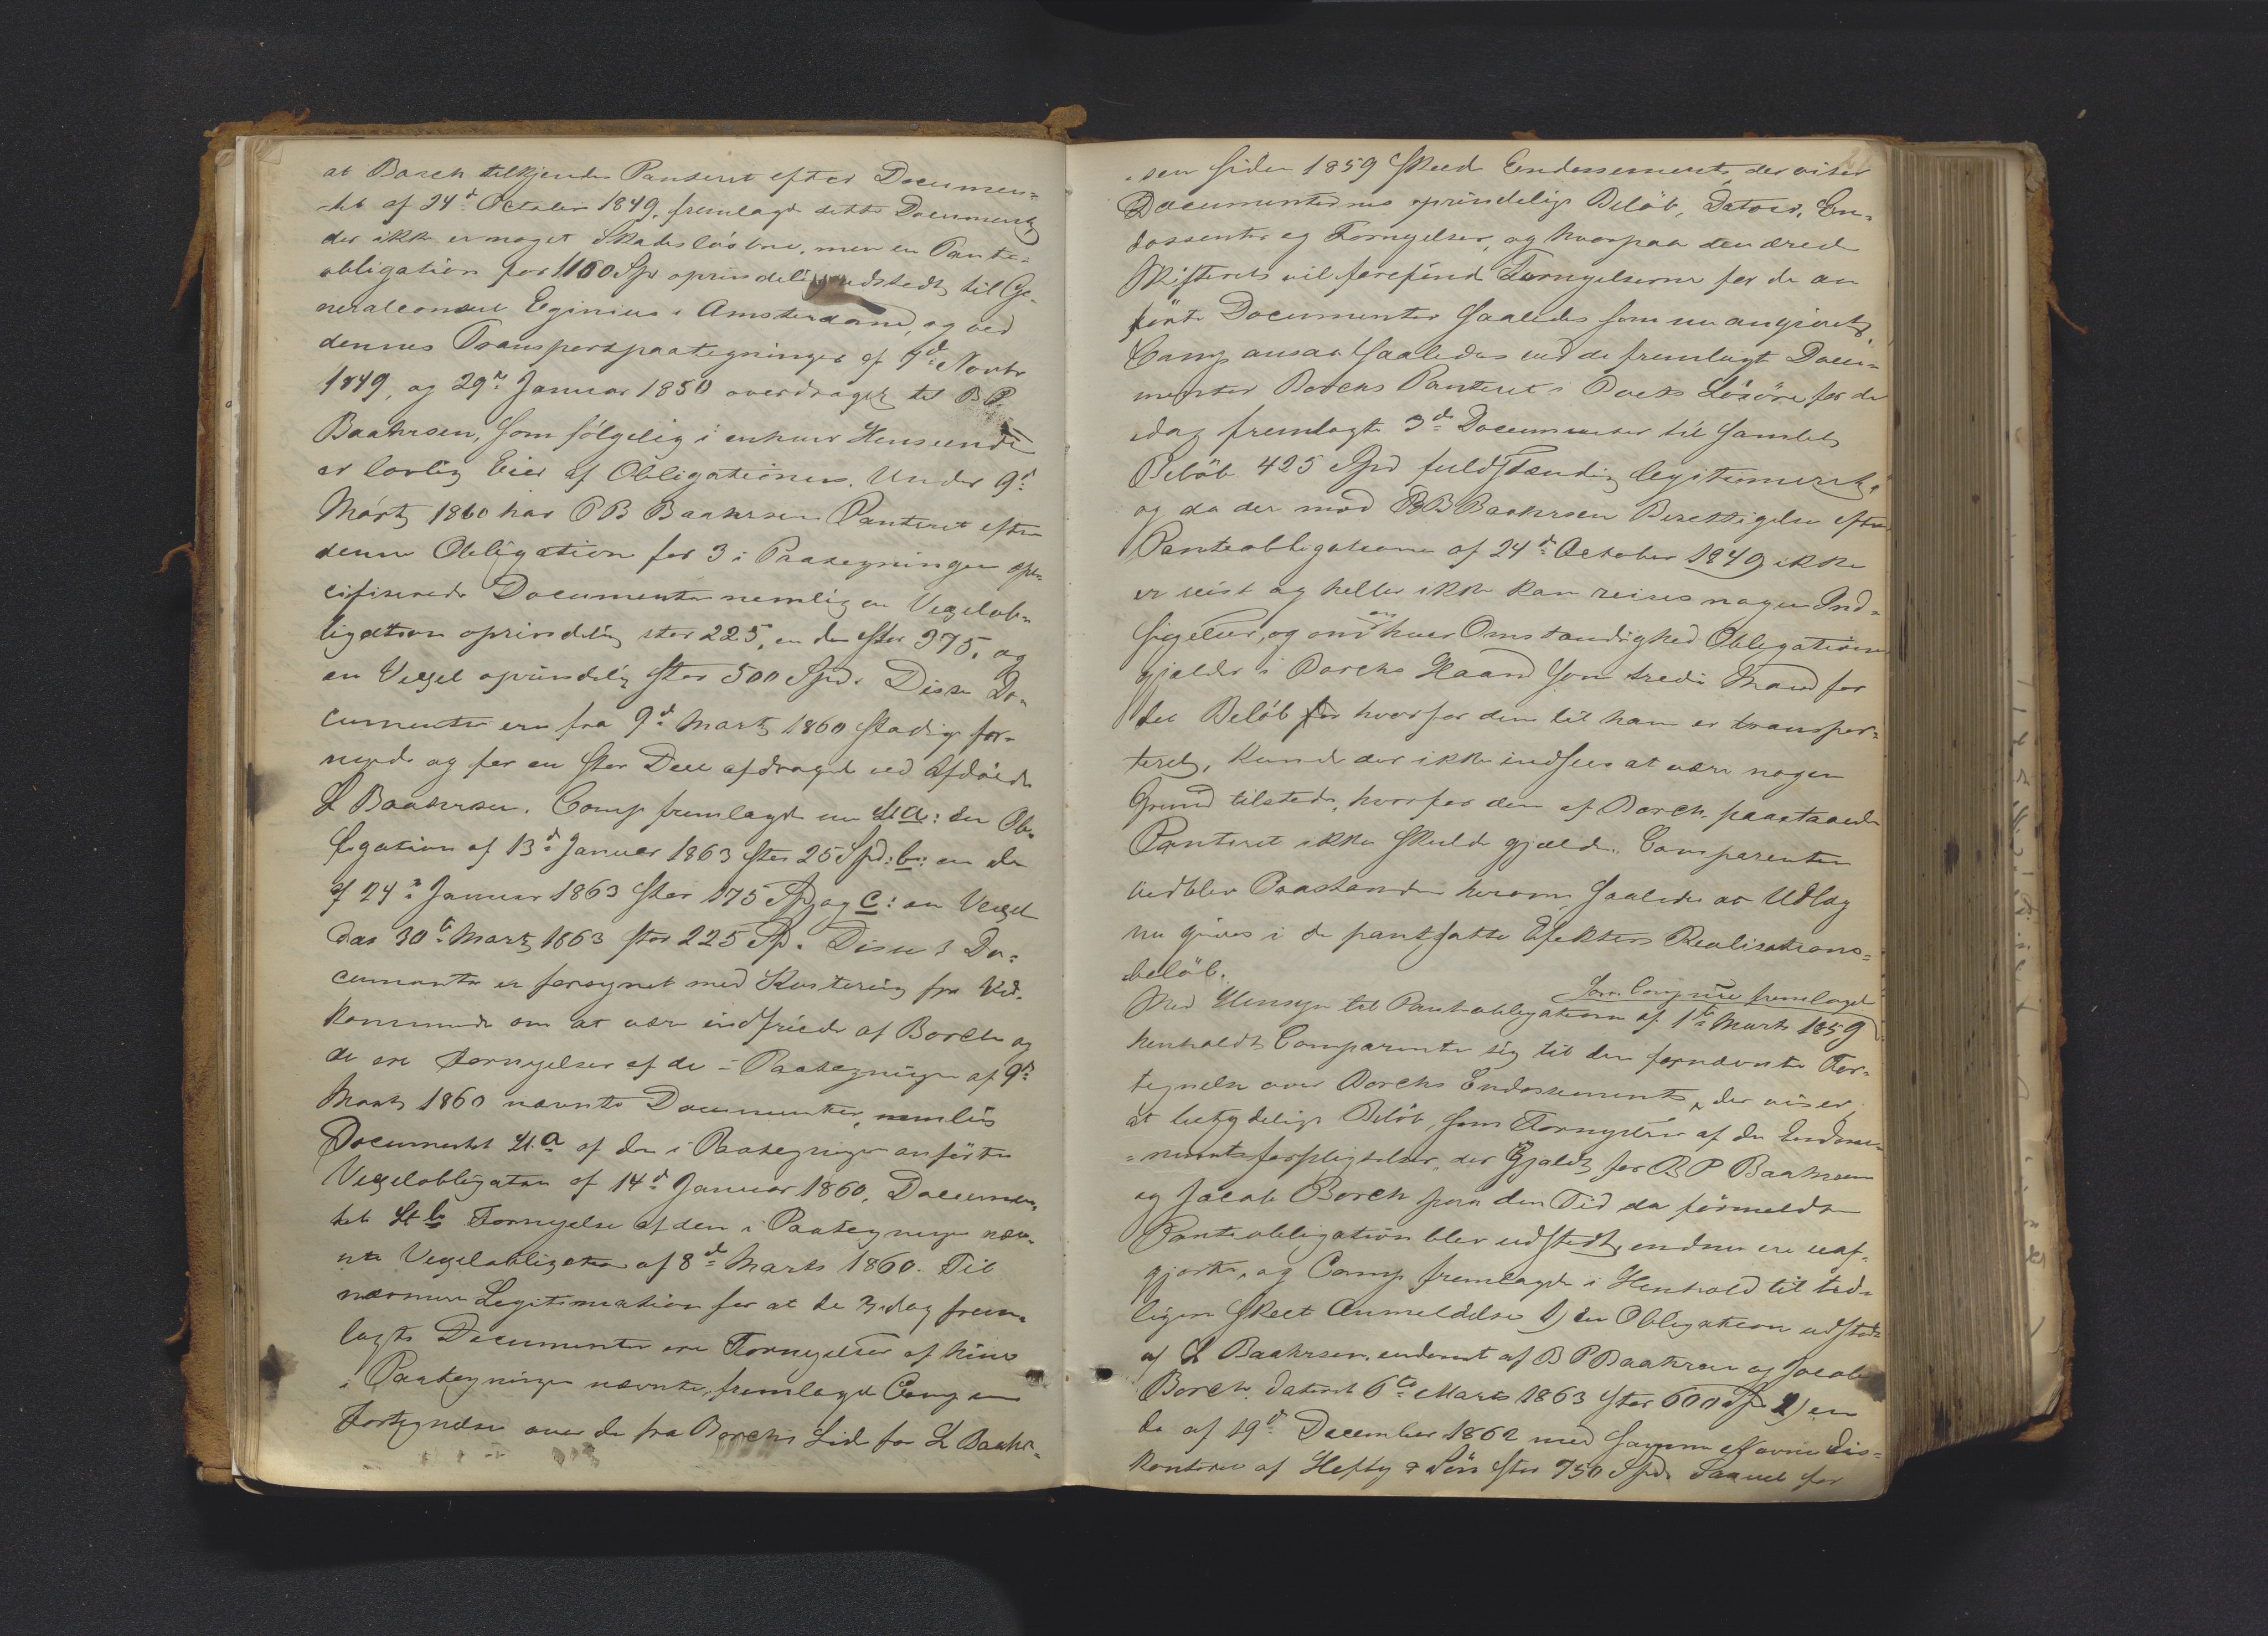 at Borch tilkjendes Panteret efter Documen=
tet af 24d October 1849, fremlagde dette Document
der ikke er noget Skadesløsbrev, men en Pante=
obligation for 1160 Spd oprindelig udstedt til Ge=
neralconsul Eginius i Amsterdam, og ved
dennes Transportpaategninger af 7d Novbr
1849, og 29d Januar 1850 overdraget til B P.
Baahrsen, som følgelig i enhver Henseende
er lovlig Eier af Obligationen. Under 9d
Marts 1860 har P B Baahrsen Panteret efter
denne Obligation for 3 i Paategningen spe=
cifiserede Documenter nemlig en Vexelob=
ligation oprindelig stor 225, en do stor 375, og
en Vexel oprindelig stor 500 Spd. Disse Do=
cumenter ere fra 9d Marts 1860 stadig for=
nyede og for en stor Deel afdraget ved Afdøde
L Baahrsen. Comp fremlagde nu Lt a: den Ob=
ligation af 13d Januar 1863 stor 25 Spd: b: en do
af 24d Januar 1863 stor 175 Sp og c: en Vexel
dat 30t Marts 1863 stor 225 Sp. Disse 3 Do=
cumenter er forsynet med Kvitering fra Ved=
kommende om at være indfriede af Borch og
de ere Fornyelser af de i Paategningen af 9d
Marts 1860 nævnte Documenter, nemlig
Documentet Lt. a af den i Paategningen anførte
Vexelobligation af 14d Januar 1860. Documen=
tet Lt b Fornyelse af den i Paategningen næv=
nte Vexelobligation af 8d Marts 1860. Til
nærmere Legitimation for at de 3 idag frem=
lagte Documenter ere Fornyelser af hine
i Paategningen nævnte, fremlagde Comp en
Fortegnelse over de fra Borchs Side for L Baahr=
sen siden 1859 skeede Endossements, der viser
Documenternes oprindelige Beløb, Datoer, En=
dossenter og Fornyelser, og hvorpaa den ærede
Skifteret vil forefinde Fornyelserne for de an
førte Documenter saaledes som nu angivet,
Comp ansaa saaledes ved de fremlagte Docu=
menter Borchs Panteret i Boets Løsøre for de
idag fremlagte 3de Documenter til samlet
Beløb 425 Spd fuldstændig legitimeret,
og da der mod BB Baahrsen Berettigelse efter
Panteobligationen af 24d October 1849 ikke
er reist og heller ikke kan reises nogen Ind=
sigelser, og under en hver Omstændighed Obligationen
gjælder i Borchs Haand som tredie Mand for
det Beløb hvorfor den til ham er transpor=
teret, kunde der ikke indsees at være nogen
Grund tilstede, hvorfor den af Borch paastaaede
Panteret ikke skulde gjælde. Comparenten
vedblev Paastanden herom, saaledes at Udlæg
nu gives i de pantsatte Efekters Realisations=
beløb.
som Comp nu fremlagde
Med Hensyn til Panteobligationen af 1ste Marts 1859
henholdt Comparenten sig til den fornævnte For=
tegnelse over Borchs Endossements, der viser,
at betydelige Beløb, som Fornyelser af de Endosse=
=mentsforpligtelser, der Gjaldt for B P Baahrsen
og Jacob Borch paa den Tid da førmeldte
Panteobligation blev udstedt, endnu ere uaf=
gjorte, og Comp fremlagde i Henhold til tid=
ligere skeet Anmeldelse 1) en Obligation udstedt
af L Baahrsen, endosseret af B P Baahrsen og Jacob
Borch, dateret 6te Marts 1863 stor 600 Sp 2) en
do af 19d December 1862 med samme Navne dis=
konteret af Hefty & Søn stor 750 Spd. Saavel for